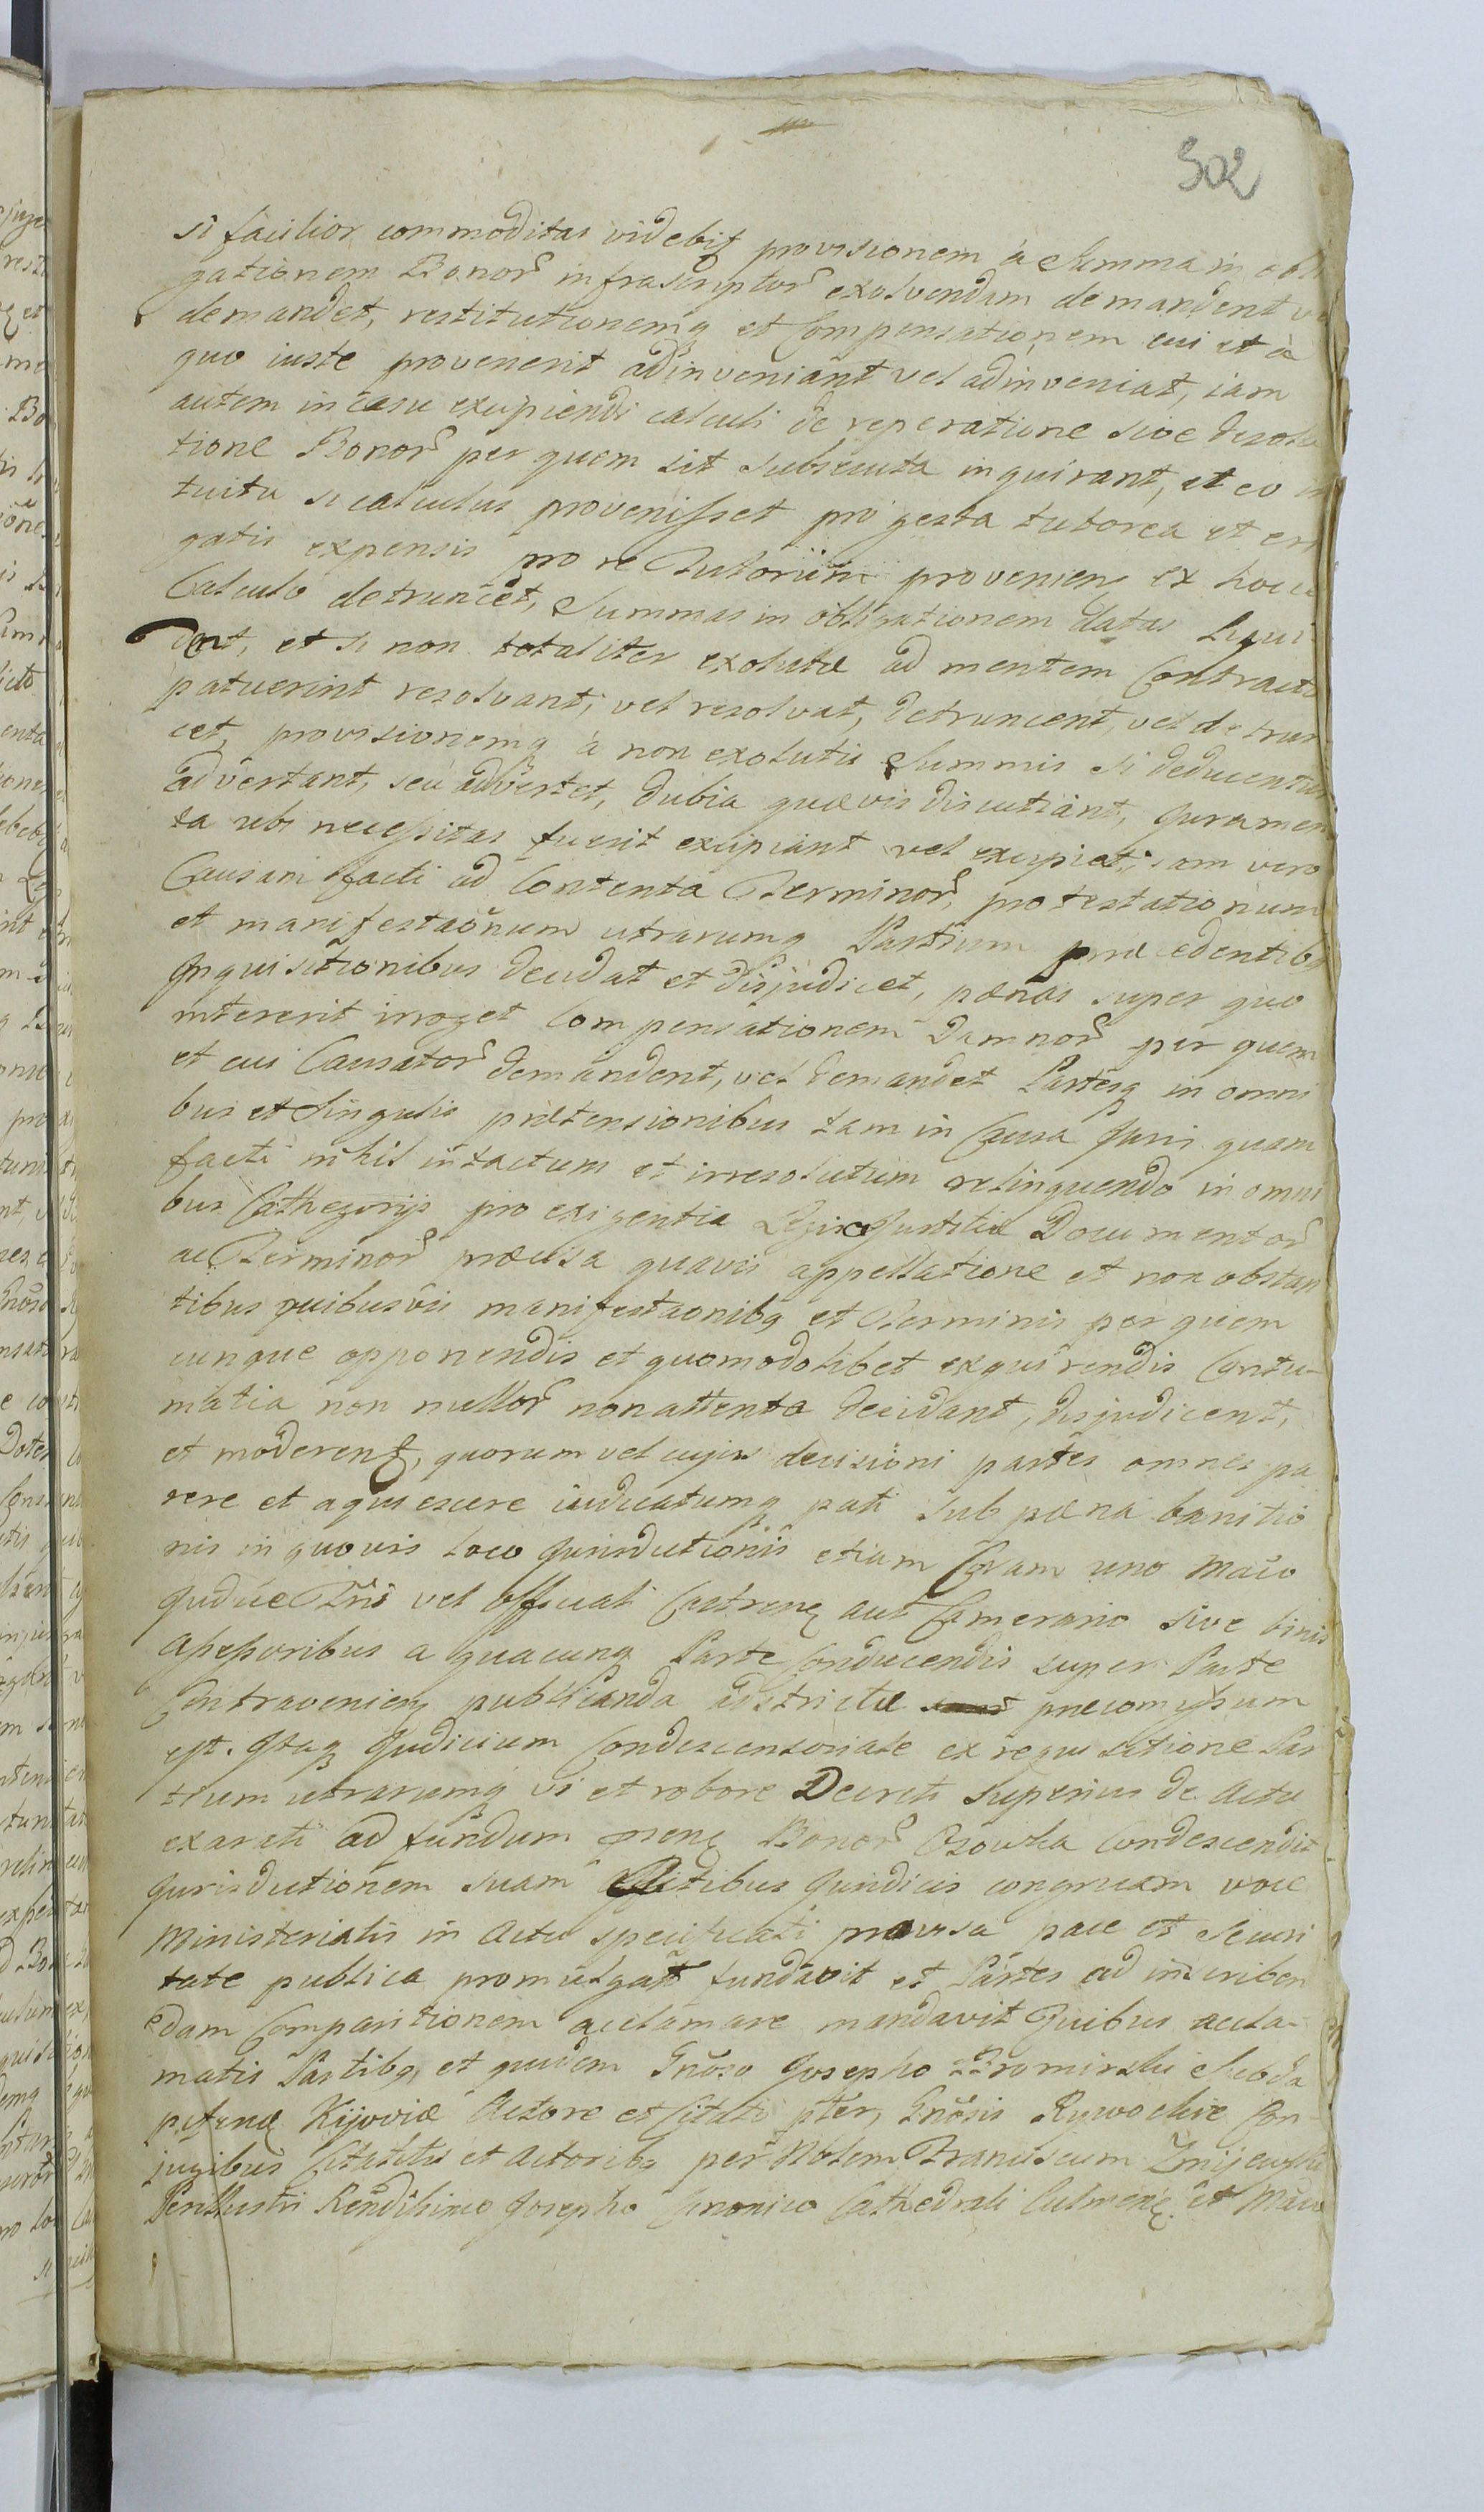 502
si facilior commoditas videbit͛ provisionem à Summa in obli
gationem Bonor͂ infrascriptor͂ exolvendam demandent v
demandet, restitutionemq̨ et Compensationem cui et à
quo iuste provenerit adinveniant vel adinveniat, iam
autem in casu excipiendi calculi de reperatione sive desola
tione Bonor͂ per quem sit subsecuta inquirant, et eo in
tuitu si calculus provenisset pro gesta tutorea et ero
gatis expensis pro re Tutorum provenienq̨ ex hoc
Calculo detruncet, Summas in obligationem datas Liqui
dent, et si non totaliter exolutæ ad mentem Contractu
patuerint resolvant, vel resolvat, detruncent, vel detrun
cet, provisionemq̨ à non exolutis Summis si deducentur
advertant, seu advertet, dubia quævis discutiant, Juramen
ta ubi necessitas fuerit excipiant vel excipiat; iam vero
Causam facti ad Contenta Terminor͂, protestationum
et manifestaõnum utrarumq̨ Partium præcedentibq̨
Inquisitionibus decidat et disjudicet, pænas super quo
intererit irroget Compensationem Damnor͂ per quem
et cui Causator͂ demandent, vel demandet Partesq̨ in omni
bus et singulis prætensionibus tam in Causa Juris quam
facti nihil intactum et irresolutum relinquendo in omni
bus Cathegorijs pro exigentia Legis Justitiæ Documentor͂
ac Terminor͂ præcisa quavis appellatione et non obstan
tibus quibusvis manifestaonibq̨ et Terminis per quem
cunque opponendis et quomodolibet exquirendis Contu-
matia non nullor͂ non attenta decidant, disjudicent,
et moderent͛, quorum vel cujus decisioni partes omnes pa
rere et aquiescere iudicatumq̨ pati sub pæna banitio
nis in quovis loco Jurisdictionis etiam Coram uno Maĩo
Judice Trïs vel Officiali Castrenq̨ aut Camerario sive binis
Assessoribus a quacunq̨ Parte Conducendis super Parte
Contravenienq̨ publicanda adstrictæ præcomissum
est. Itaq̨ Judicium Condescensoriale ex requisitione Par
tium utrarumq̨ vi et robore Decreti superius de Actu
exarati ad fundum præsenq̨ Bonor͂ Ozowka Condescendit
Jurisdictionem suam Actibus Juridicis congruam voce
Ministerialis in Actu specificati prævisa pace et Securi
tate publica promulgata fundavit et Partes ad inscriben
dam Comparitionem acclamare mandavit Quibus accla-
matis Partibq̨, et quidem Gñoso Josepho Bromirski Subda
pifero Kijoviæ Actore et Citato pter, Gñosis Rywockie Con-
jugibus Citatis et Actoribq̨ per Noblem Franciscum Zmijewski
Perillustri Rendissimo Josepho Canonico Cathedrali Culmenq̨ et Maĩo